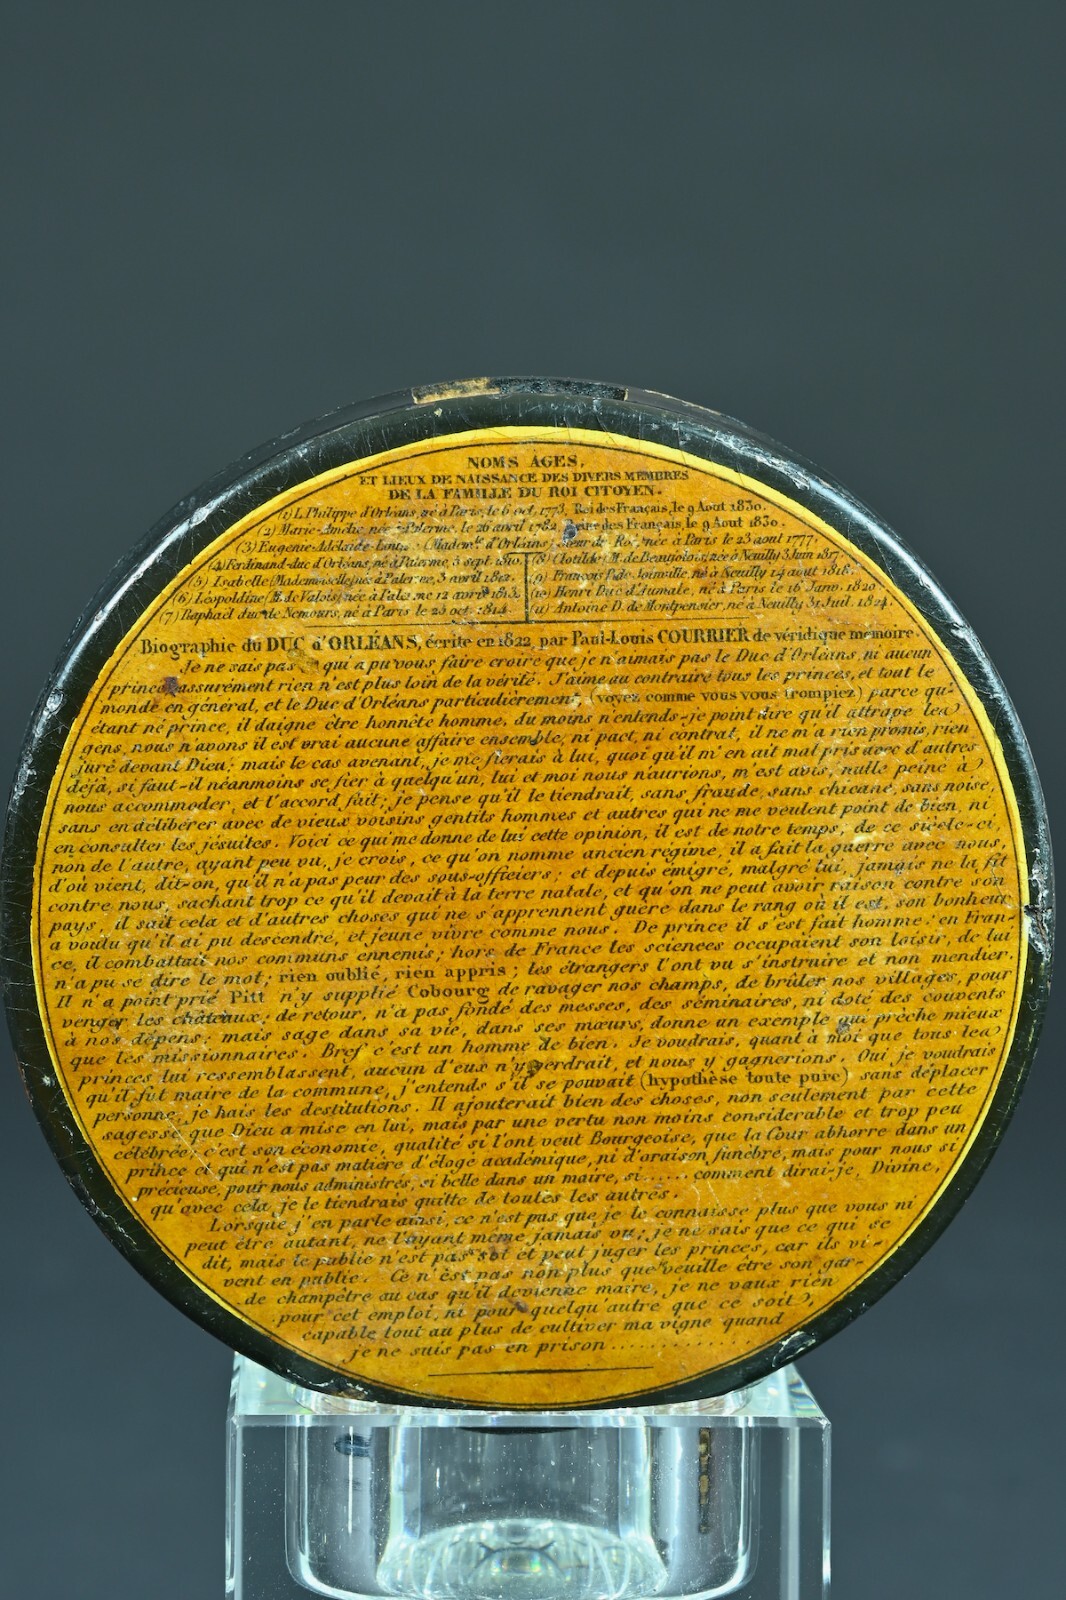 NOMS ÂGES,
ET LIEUX DE NAISSANCE DES DIVERS MEMBRES
DE LA FAMILLE DU ROI CITOYEN.
(1) L. Philippe d'Orléans, né à Paris, le 6 oct. 1773, Roi des Français, le 9 Aout 1830.
(2) Marie-Amélie, née à Palerme, le 26 avril 1782, Reine des Français, le 9 Aout 1830.
(3) Eugenie-Adélaïde-Louise (Madem.lle d'Orléans) sœur du Roi, née à Paris le 23 aout 1777.
(4) Ferdinand-duc d'Orléans, né à Palerme, 3 sept. 1810.
(5) Isabelle (Mademoiselle) née à Palerme, 3 avril 1812.
(6) Léopoldine (M. de Valois) née à Palerme 12 avril 1813.
(7) Raphaël duc de Nemours, né à Paris le 25 oct. 1814.
(8) Clotilde (M. de Beaujolais, née à Neuilly 3 Juin 1817.
(9) François P. de Joinville, né à Neuilly 14 aout 1818.
(10) Henri Duc d'Aumale, né à Paris le 16 Janv. 1820
(11) Antoine D. de Montpensier, né à Neuilly 31 Juil. 1824.
Biographie du DUC d'ORLÉANS, écrite en 1822 par Paul-Louis COURRIER de véridique mémoire.
Je ne sais pas qui a pu vous faire croire que je n'aimais pas le Duc d'Orléans, ni aucun
prince assurément rien n'est plus loin de la vérité. J'aime au contraire tous les princes, et tout le
monde en général, et le Duc d'Orléans particulièrement, (voyez comme vous vous trompiez) parce qu'
étant né prince, il daigne être honnête homme, du moins n'entends-je point dire qu'il attrape les
gens, nous n'avons il est vrai aucune affaire ensemble, ni pact, ni contrat, il ne m'a rien promis, rien
juré devant Dieu; mais le cas avenant, je me fierais à lui, quoi qu'il m'en ait mal pris avec d'autres
déjà, si faut-il néanmoins se fier à quelqu'un, lui et moi nous n'aurions, m'est avis, nulle peine à
nous accommoder, et l'accord fait; je pense qu'il le tiendrait, sans fraude, sans chicane, sans noise,
sans en délibérer avec de vieux voisins gentils hommes et autres qui ne me veulent point de bien, ni
en consulter les jésuites. Voici ce qui me donne de lui cette opinion, il est de notre temps, de ce siècle-ci,
non de l'autre, ayant peu vu, je crois, ce qu'on nomme ancien régime, il a fait la guerre avec nous,
d'où vient, dit-on, qu'il n'a pas peur des sous-officiers; et depuis émigré, malgré lui, jamais ne la fit
contre nous, sachant trop ce qu'il devait à la terre natale, et qu'on ne peut avoir raison contre son
pays, il sait cela et d'autres choses qui ne s'apprennent guère dans le rang où il est, son bonheur
a voulu qu'il ai pu descendre, et jeune vivre comme nous. De prince il s'est fait homme: en Fran-
ce, il combattait nos communs ennemis; hors de France les sciences occupaient son loisir, de lui
n'a pu se dire le mot; rien oublié, rien appris; les étrangers l'ont vu s'instruire et non mendier.
Il n'a point prié Pitt n'y supplié Cobourg de ravager nos champs, de brûler nos villages, pour
venger les châteaux; de retour, n'a pas fondé des messes, des séminaires, ni doté des couvents
à nos dépens; mais sage dans sa vie, dans ses mœurs, donne un exemple qui prêche mieux
que les missionnaires. Bref c'est un homme de bien. Je voudrais, quant à moi que tous les
princes lui ressemblassent, aucun d'eux n'y perdrait, et nous y gagnerions. Oui je voudrais
qu'il fût maire de la commune, j'entends s'il se pouvait (hypothèse toute pure) sans déplacer
personne, je hais les destitutions. Il ajouterait bien des choses, non seulement par cette
sagesse que Dieu a mise en lui, mais par une vertu non moins considérable et trop peu
célébrée, c'est son économie, qualité si l'ont veut Bourgeoise, que la Cour abhorre dans un
prince et qui n'est pas matière d'éloge académique, ni d'oraison funèbre, mais pour nous si
précieuse, pour nous administrés, si belle dans un maire, si......comment dirai-je, Divine,
qu'avec cela, je le tiendrais quitte de toutes les autres.
Lorsque j'en parle ainsi, ce n'est pas que je le connaisse plus que vous ni
peut être autant, ne l'ayant même jamais vu; je ne sais que ce qui se
dit, mais le public n'est pas sot et peut juger les princes, car ils vi-
vent en public. Ce n'est pas non plus que veuille être son gar-
de champêtre au cas qu'il devienne maire, je ne vaux rien
pour cet emploi, ni pour quelqu'autre que ce soit,
capable tout au plus de cultiver ma vigne quand
je ne suis pas en prison.............